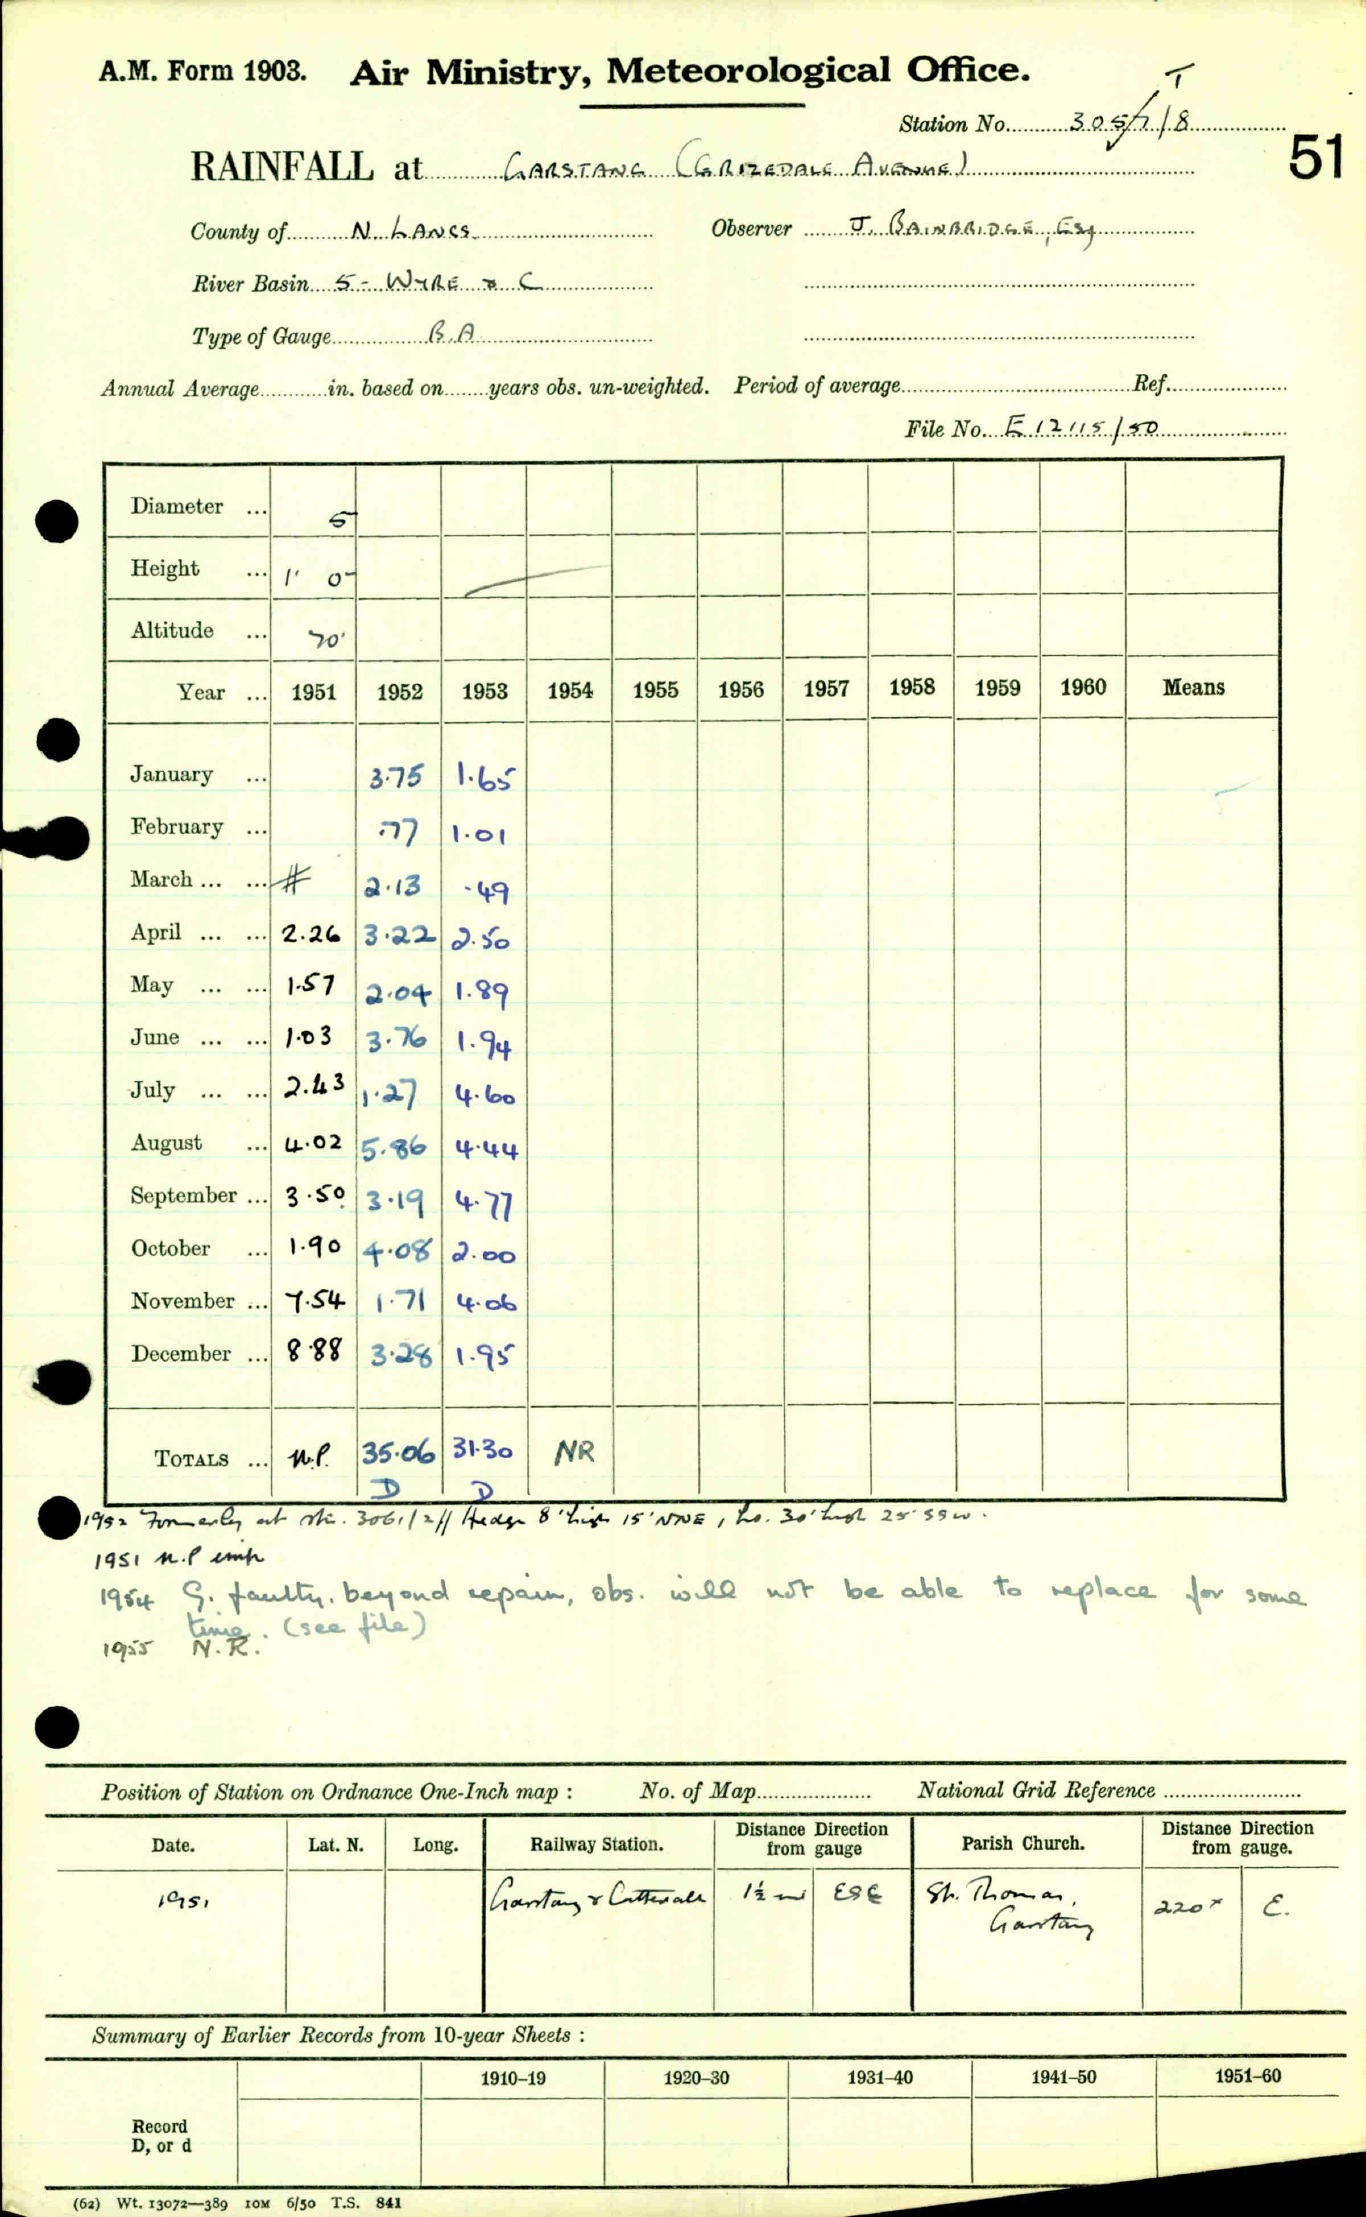 A.M. Form 1903. Air Ministry, Meteorological Office.
T
Station No. 305/7/8
51
RAINFALL at GARSTANG (GRIZEDALE AVENUE)
County of N. LANCS. Observer J. BAINBRIDGE, Esq
River Basin 5 - WYRE & C
Type of Gauge B.A
Annual Average in. based on years obs. un-weighted. Period of average Ref.
File No. E 12115/50
Diameter ... 5
Height ... 1' 0
Altitude ... 70'
Year ... 1951 1952 1953 1954 1955 1956 1957 1958 1959 1960 Means
January ... 3.75 1.65
February ... .77 1.01
March ... ... # 2.13 .49
April ... ... 2.26 3.22 2.50
May ... ... 1.57 2.04 1.89
June ... ... 1.03 3.76 1.94
July ... ... 2.43 1.27 4.60
August ... 4.02 5.86 4.44
September ... 3.50 3.19 4.77
October ... 1.90 4.08 2.00
November ... 7.54 1.71 4.06
December ... 8.88 3.28 1.95
TOTALS ... N.P. 35.06 31.30 NR
D D
1952 Formerly at stn. 3061/2 // Hedge 8' high 15' NNE, ho. 30' high 25' SSW.
1951 N.P
1954 G. faulty. beyond repair, obs. will not be able to replace for some
time. (see file)
1955 N.R.
Position of Station on Ordnance One-Inch map : No. of Map National Grid Reference
Date. Lat. N. Long. Railway Station. Distance Direction from gauge Parish Church. Distance Direction from gauge.
1951 Garstang & Catterall 1½ mi ESE St. Thomas, 220 E.
Garstang
Summary of Earlier Records from 10-year Sheets :
1910–19 1920–30 1931–40 1941–50 1951–60
Record
D, or d
(62) Wt. 13072—389 10M 6/50 T.S. 841